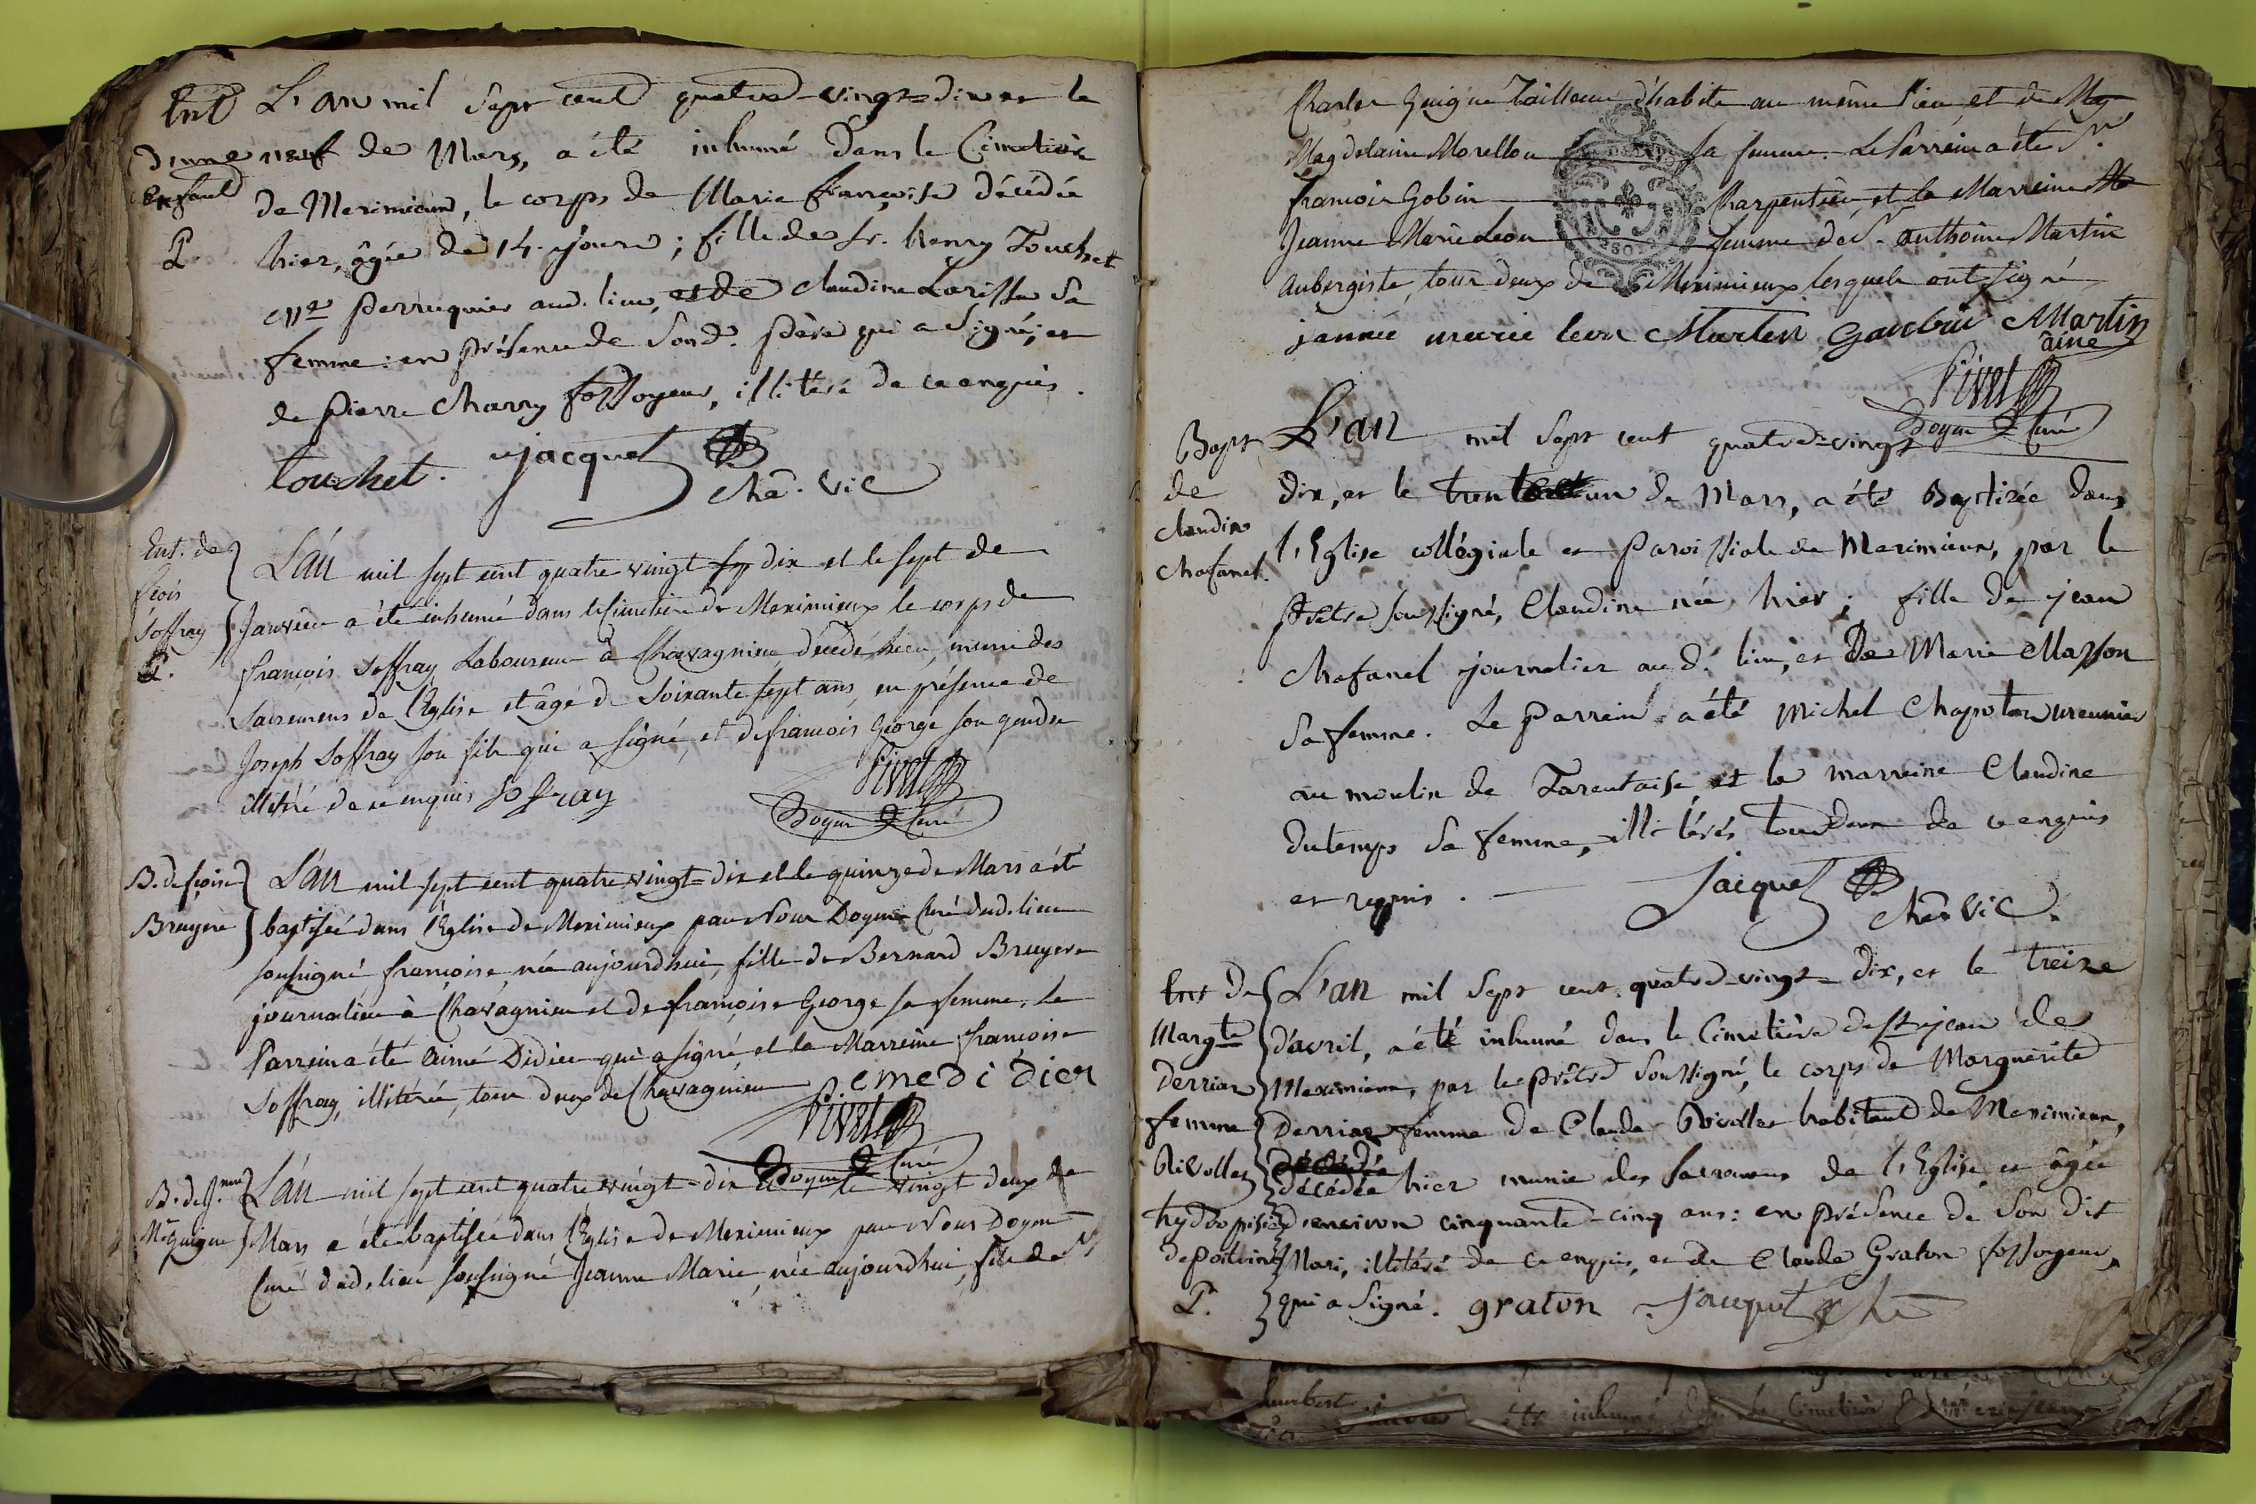 Ent L'an mil Sept cent quatre-vingt-dix et le
d'une neuf de Mars, a été inhumé dans le Cimetière
Enfant de Meximieux, le corps de Marie françoise décédée
P. hier, âgée de 14. jours ; fille de Sr. henry Touchet
Me perruquier aud. lieu, et de Claudine Sa
femme : en présence de Sond. père qui a Signé, et
de pierre Charry fossoyeur, illitéré de ce enquis.
touchet. jacquet
Cha. Vic
Ent. de L'an mil sept cent quatre vingt dix et le sept de
fcois
Soffray Janvier a été inhumé dans le Cimetière de Meximieux le corps de
P. françois Soffray Laboureur à Chavagnieu décédé hier, muni des
Sacremens de l'Eglise et âgé de Soixante sept ans, en présence de
Joseph Soffray son fils qui a signé, et de francois George son gendre
illitéré de ce enquis Soffray Rivet
Doyen & Curé
B. de fçoise L'an mil sept cent quatre vingt-dix et le quinze de Mars a été
Bruyere baptisée dans l'Eglise de Meximieux par Nous Doyen Curé dud. lieu
soussigné françoise, née aujourdhui, fille de Bernard Bruyere
journalier à Chavagnieu et de françoise George sa femme. Le
Parrein a été aimé Didier qui a signé et la Marreine françoise
Soffray, illitérée, tous deux de Chavagnieu emedidier
Rivet
Doyen & Curé
B. de J.nne L'an mil sept cent quatre vingt-dix et le vingt deux de
Mie guigue Mars a été baptisée dans l'Eglise de Meximieux par Nous Doyen
Curé dud. lieu soussigné Jeanne Marie, née aujourdhui, fille de
Charles Guigue Tailleur d'habits au même lieu et de
Magdelaine Morellon sa femme. Le Parrein a été Sr.
francois Gobin Charpentier et la Marreine
Jeanne Marie Leon femme de Sr. anthoine Martin
aubergiste, tous deux de Meximieux lesquels ont signé
janne marie leon Marten Martin
aîné
Rivet
Doyen & Curé
Bapt L'an mil Sept cent quatre-vingt
de dix, et le trente un de Mars, a été Baptizée dans
Claudine l'Eglise collégiale et Paroissiale de Meximieux, par le
Chafanel. prêtre soussigné, Claudine née hier ; fille de jean
Chafanel journalier aud. lieu, et De Marie Masson
Sa femme. Le parrein a été Michel Chapoton meunier
au moulin de Tarentaise et la marreine Claudine
dutemps Sa femme, illitérés tous deux de ce enquis
et requis. Jacquet
Cha Vic.
Ent de L'an mil Sept cent quatre-vingt-dix, et le treize
Margte d'avril, a été inhumé dans le Cimetière de St. jean de
Derriaz Meximieux, par le prêtre soussigné, le corps de Marguerite
femme Derriaz femme de Claude Rivolles habitant de Meximieux,
Rivolles décédée hier munie des Sacremens de l'Eglise, et âgée
hydropisie d'environ cinquante-cinq ans : en présence de Son dit
de poitrine Mari, illitéré de ce enquis, et de Claude Graton fossoyeur,
P. qui a Signé. graton Jacquet